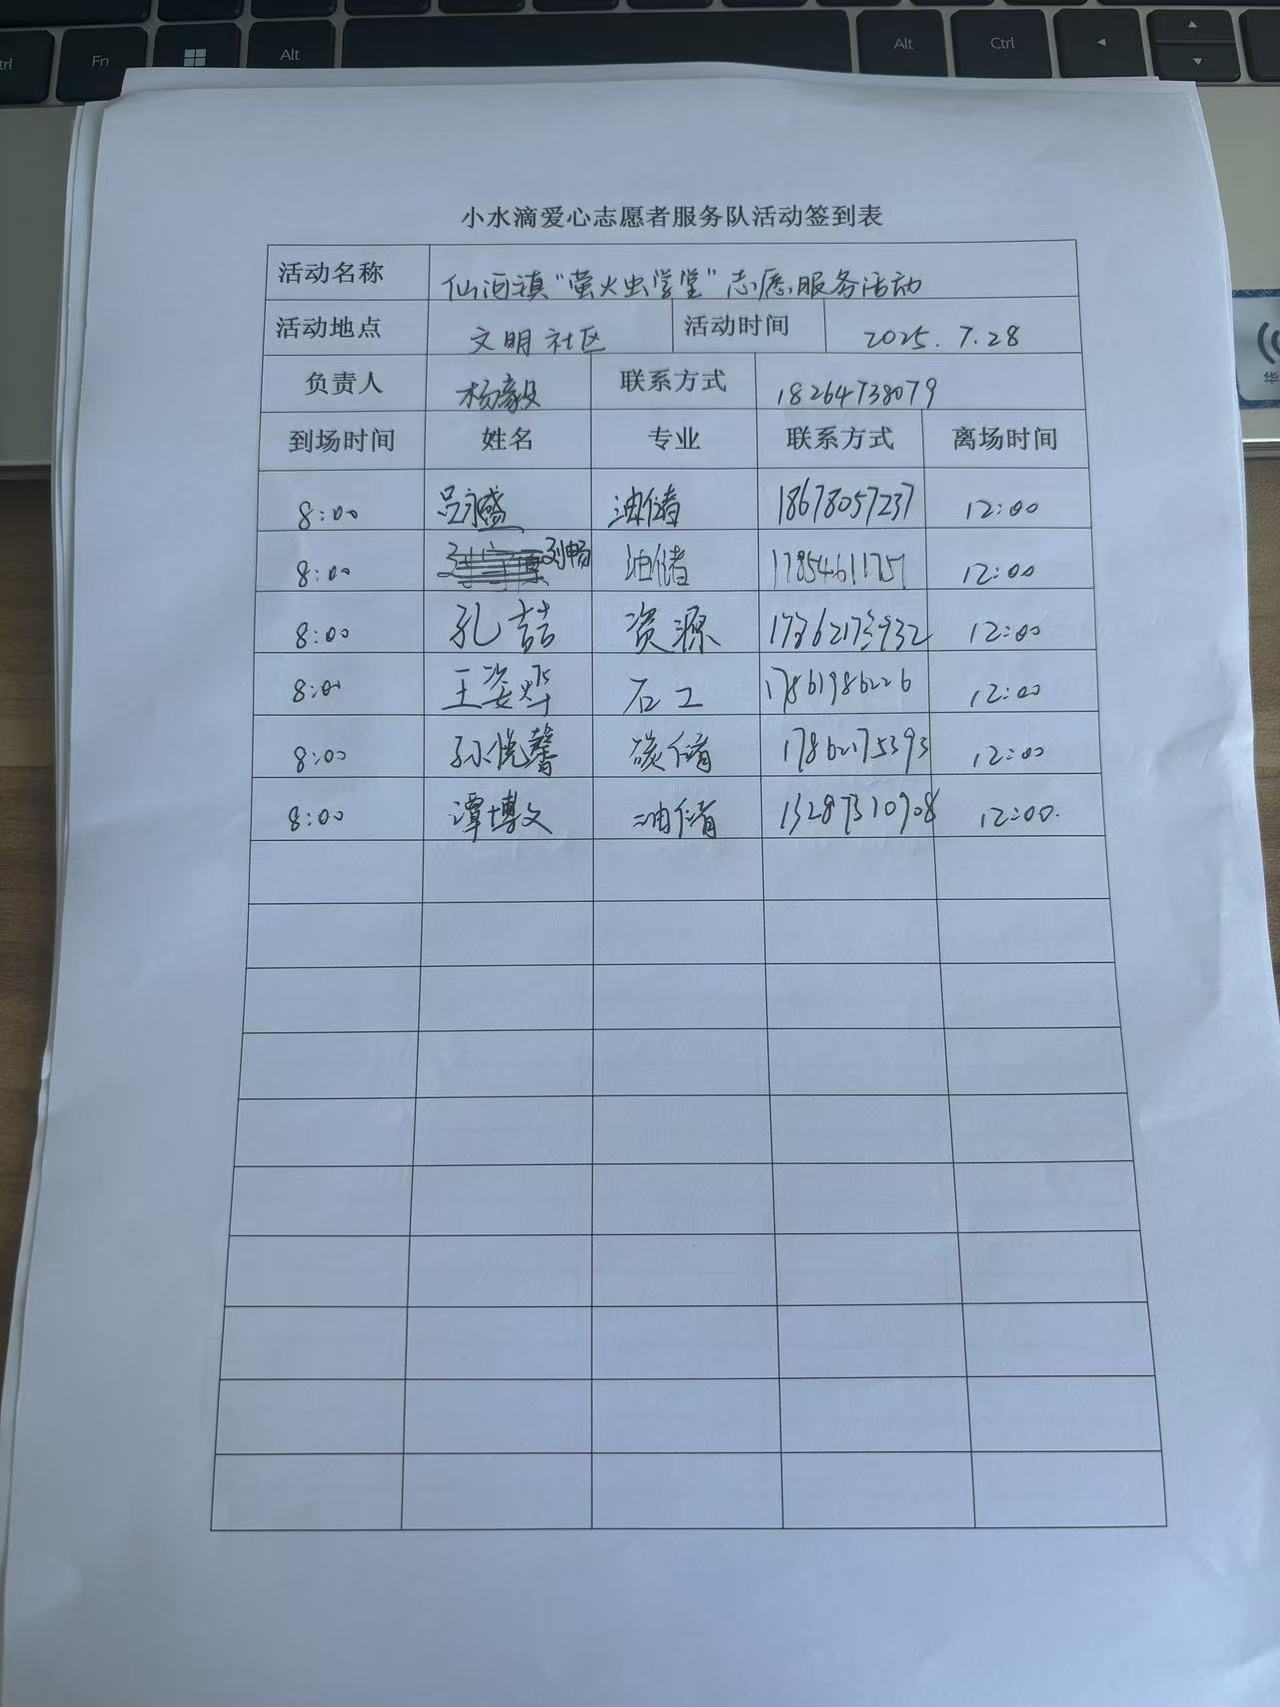 Fn
Alt
Alt
Ctrl
小水滴爱心志愿者服务队活动签到表
活动名称 仙河镇"萤火虫学堂"志愿服务活动
活动地点 文明社区 活动时间 2025.7.28
负责人 杨毅 联系方式 18264738079
到场时间 姓名 专业 联系方式 离场时间
8:00 吕永盛 油储 18678057237 12:00
8:00 刘畅 油储 17854611751 12:00
8:00 孔喆 资源 17362173932 12:00
8:00 王姿烨 石工 17861986226 12:00
8:00 孙悦馨 碳储 17862175393 12:00
8:00 潭博文 油储 13287310908 12:00.
华